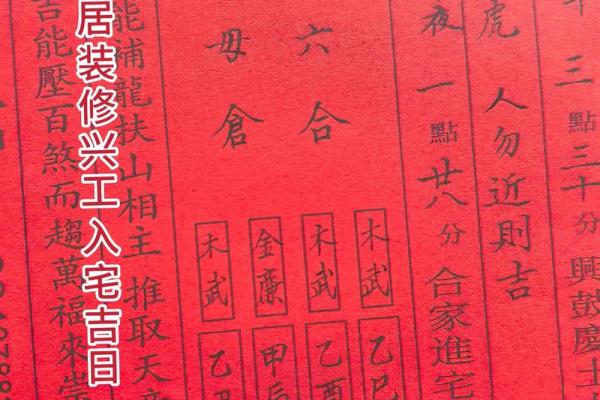 三點三十分興鼓慶土
虎人勿近則吉
夜一點廿八分合家進宅
六合
毋倉
木武 乙巳
木武 乙酉
金廉 甲辰
木武 乙
能補龍扶山相主推取天
居装修兴工入宅吉日
吉能壓百煞而趨萬福來崇